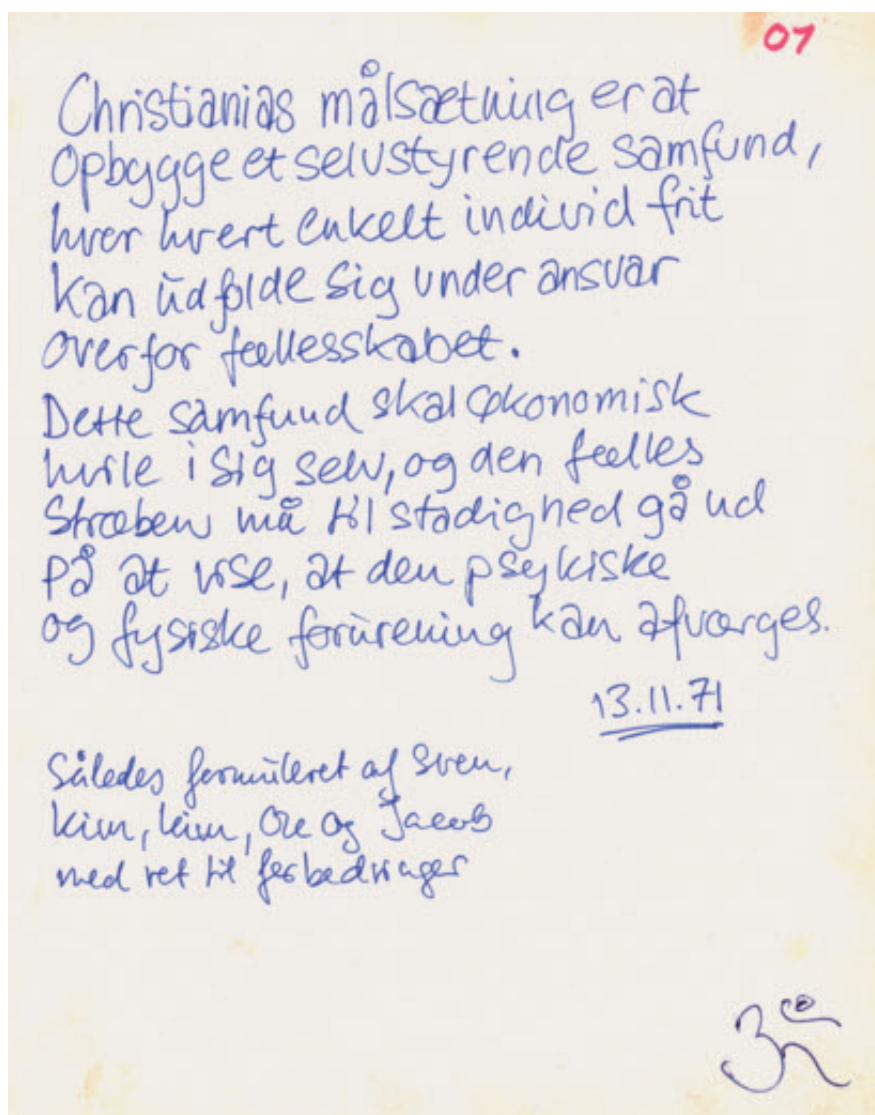 01
Christianias målsætning er at
opbygge et selvstyrende samfund,
hver hvert enkelt individ frit
kan udfolde sig under ansvar
overfor fællesskabet.
Dette samfund skal økonomisk
hvile i sig selv, og den fælles
stræben må til stadighed gå ud
på at vise, at den psykiske
og fysiske forurening kan afværges.
13.11.71
Således formuleret af Sven,
Kim, Kim, Ole og Jacob
med ret til forbedringer
ॐ